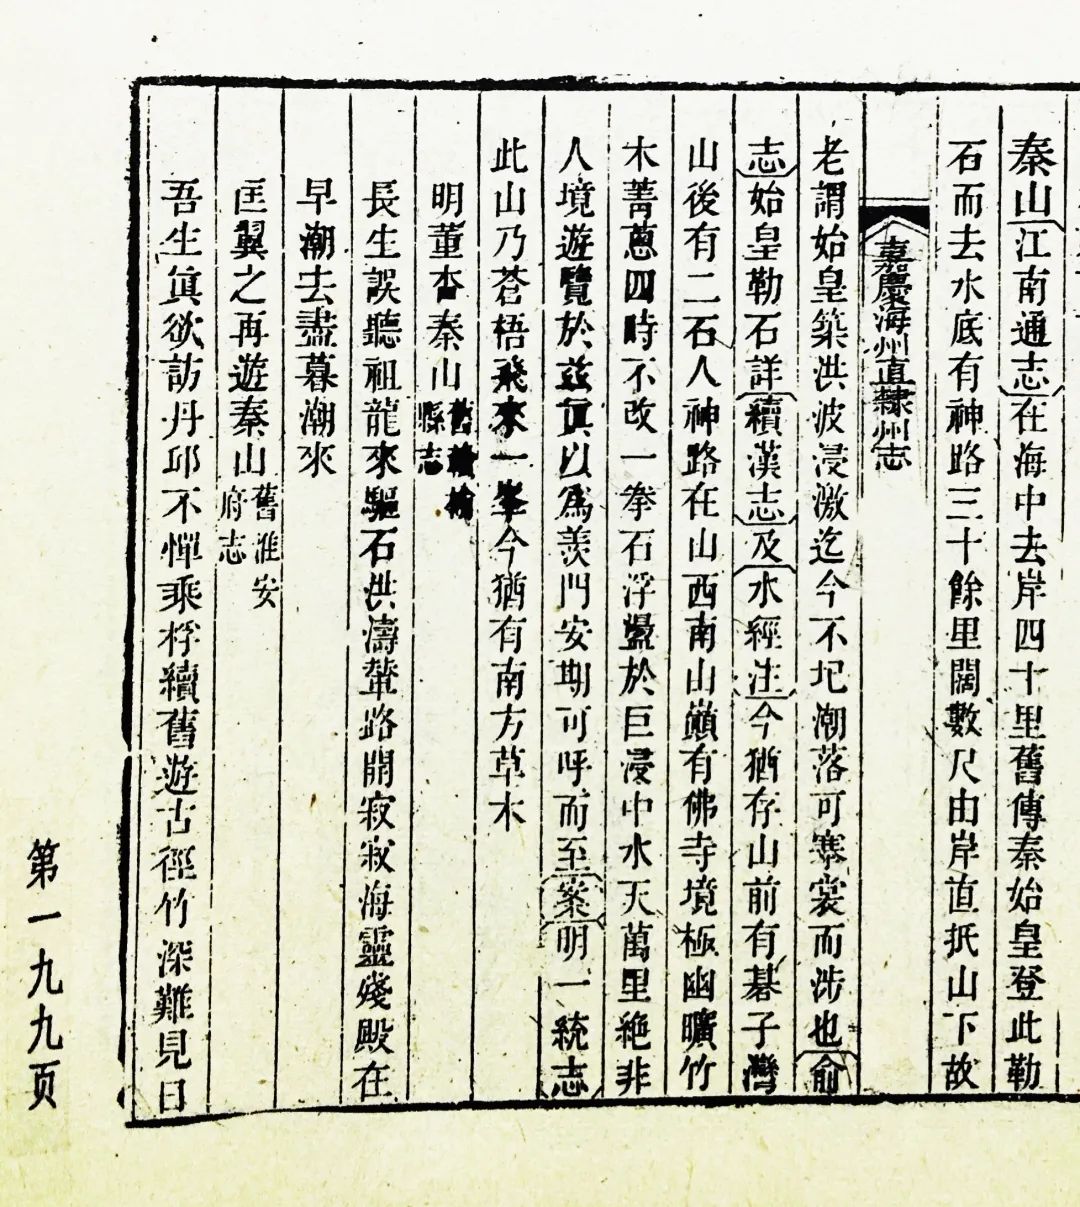 秦山江南通志在海中去岸四十里舊傳秦始皇登此勒
石而去水底有神路三十餘里闊數尺由岸直抵山下故
嘉慶海州直隸州志
老謂始皇築洪波浸激迄今不圮潮落可褰裳而涉也俞
志始皇勒石詳續漢志及水經注今猶存山前有碁子灣
山後有二石人神路在山西南山巔有佛寺境極幽曠竹
木菁蔥四時不改一拳石浮盪於巨浸中水天萬里絶非
人境遊覽於兹眞以爲羨門安期可呼而至案明一統志
此山乃蒼梧飛來一峯今猶有南方草木
明董杏秦山舊贛榆縣志
長生誤聽祖龍來驅石洪濤輦路開寂寂海靈殘殿在
早潮去盡暮潮來
匡翼之再遊秦山舊淮安府志
吾生眞欲訪丹邱不憚乘桴續舊遊古徑竹深難見日
第一九九页